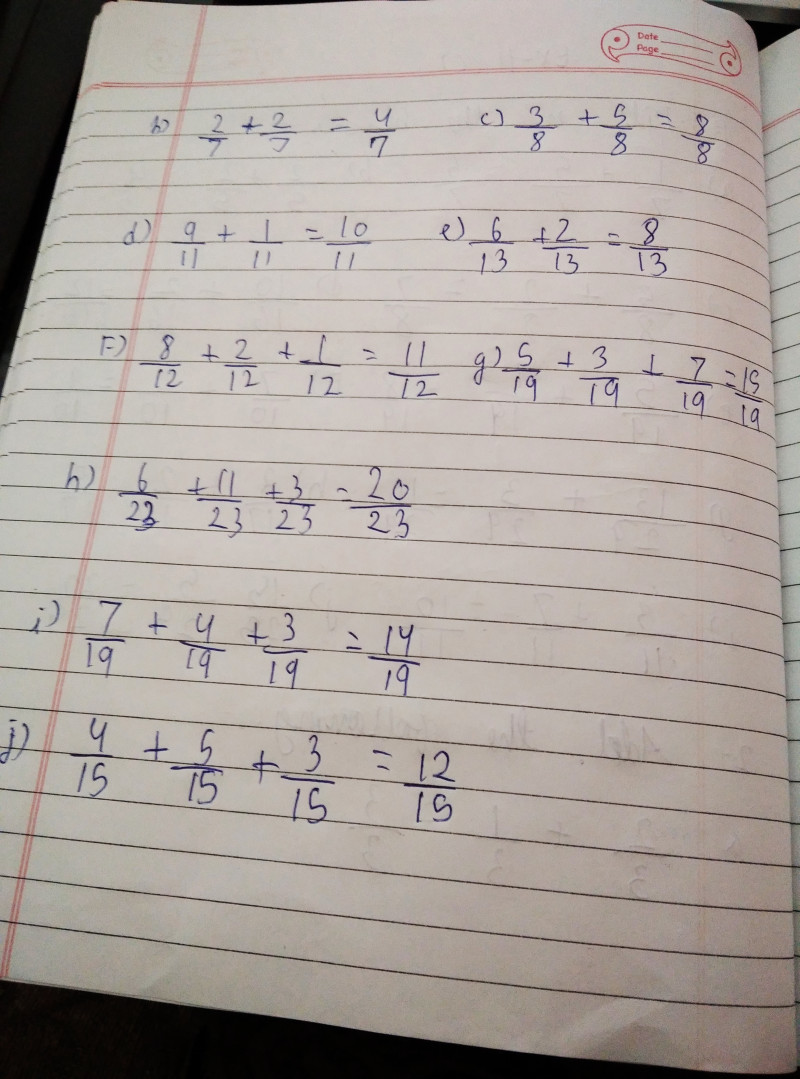 Date
Page
b) 2/7 + 2/7 = 4/7 c) 3/8 + 5/8 = 8/8
d) 9/11 + 1/11 = 10/11 e) 6/13 + 2/13 = 8/13
F) 8/12 + 2/12 + 1/12 = 11/12 g) 5/19 + 3/19 + 7/19 = 15/19
h) 6/23 + 11/23 + 3/23 = 20/23
i) 7/19 + 4/19 + 3/19 = 14/19
j) 4/15 + 5/15 + 3/15 = 12/15